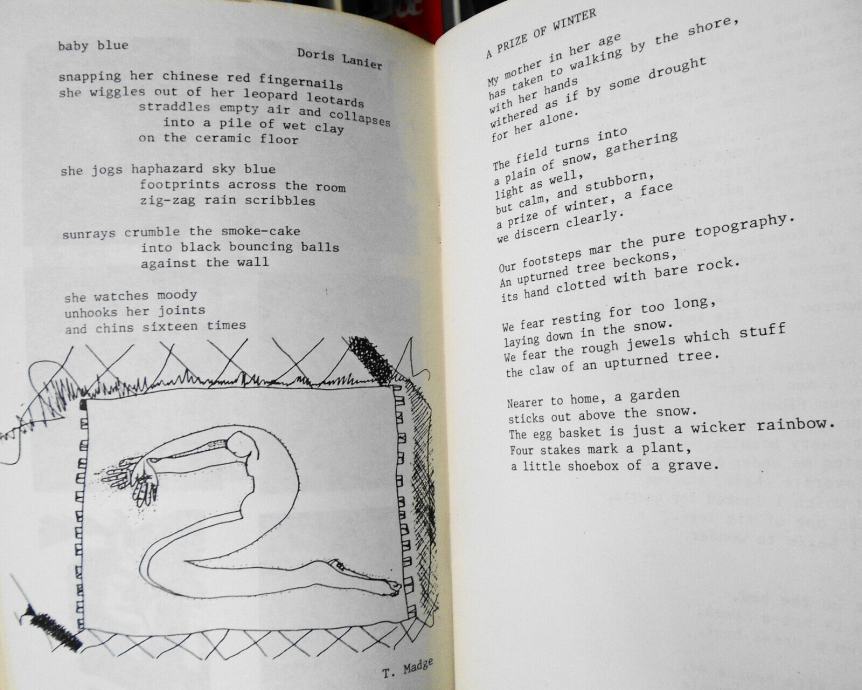 baby blue
Doris Lanier
snapping her chinese red fingernails
she wiggles out of her leopard leotards
straddles empty air and collapses
into a pile of wet clay
on the ceramic floor
she jogs haphazard sky blue
footprints across the room
zig-zag rain scribbles
sunrays crumble the smoke-cake
into black bouncing balls
against the wall
she watches moody
unhooks her joints
and chins sixteen times
T. Madge
A PRIZE OF WINTER
My mother in her age
has taken to walking by the shore,
with her hands
withered as if by some drought
for her alone.
The field turns into
a plain of snow, gathering
light as well,
but calm, and stubborn,
a prize of winter, a face
we discern clearly.
Our footsteps mar the pure topography.
An upturned tree beckons,
its hand clotted with bare rock.
We fear resting for too long,
laying down in the snow.
We fear the rough jewels which stuff
the claw of an upturned tree.
Nearer to home, a garden
sticks out above the snow.
The egg basket is just a wicker rainbow.
Four stakes mark a plant,
a little shoebox of a grave.